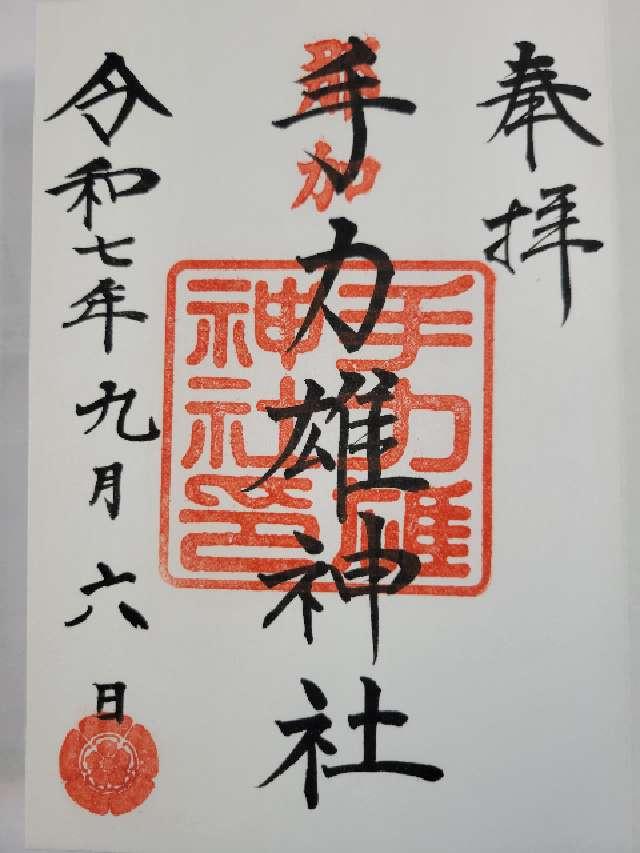 奉拝
那加
手力雄神社
手力雄
神社印
令和七年九月六日